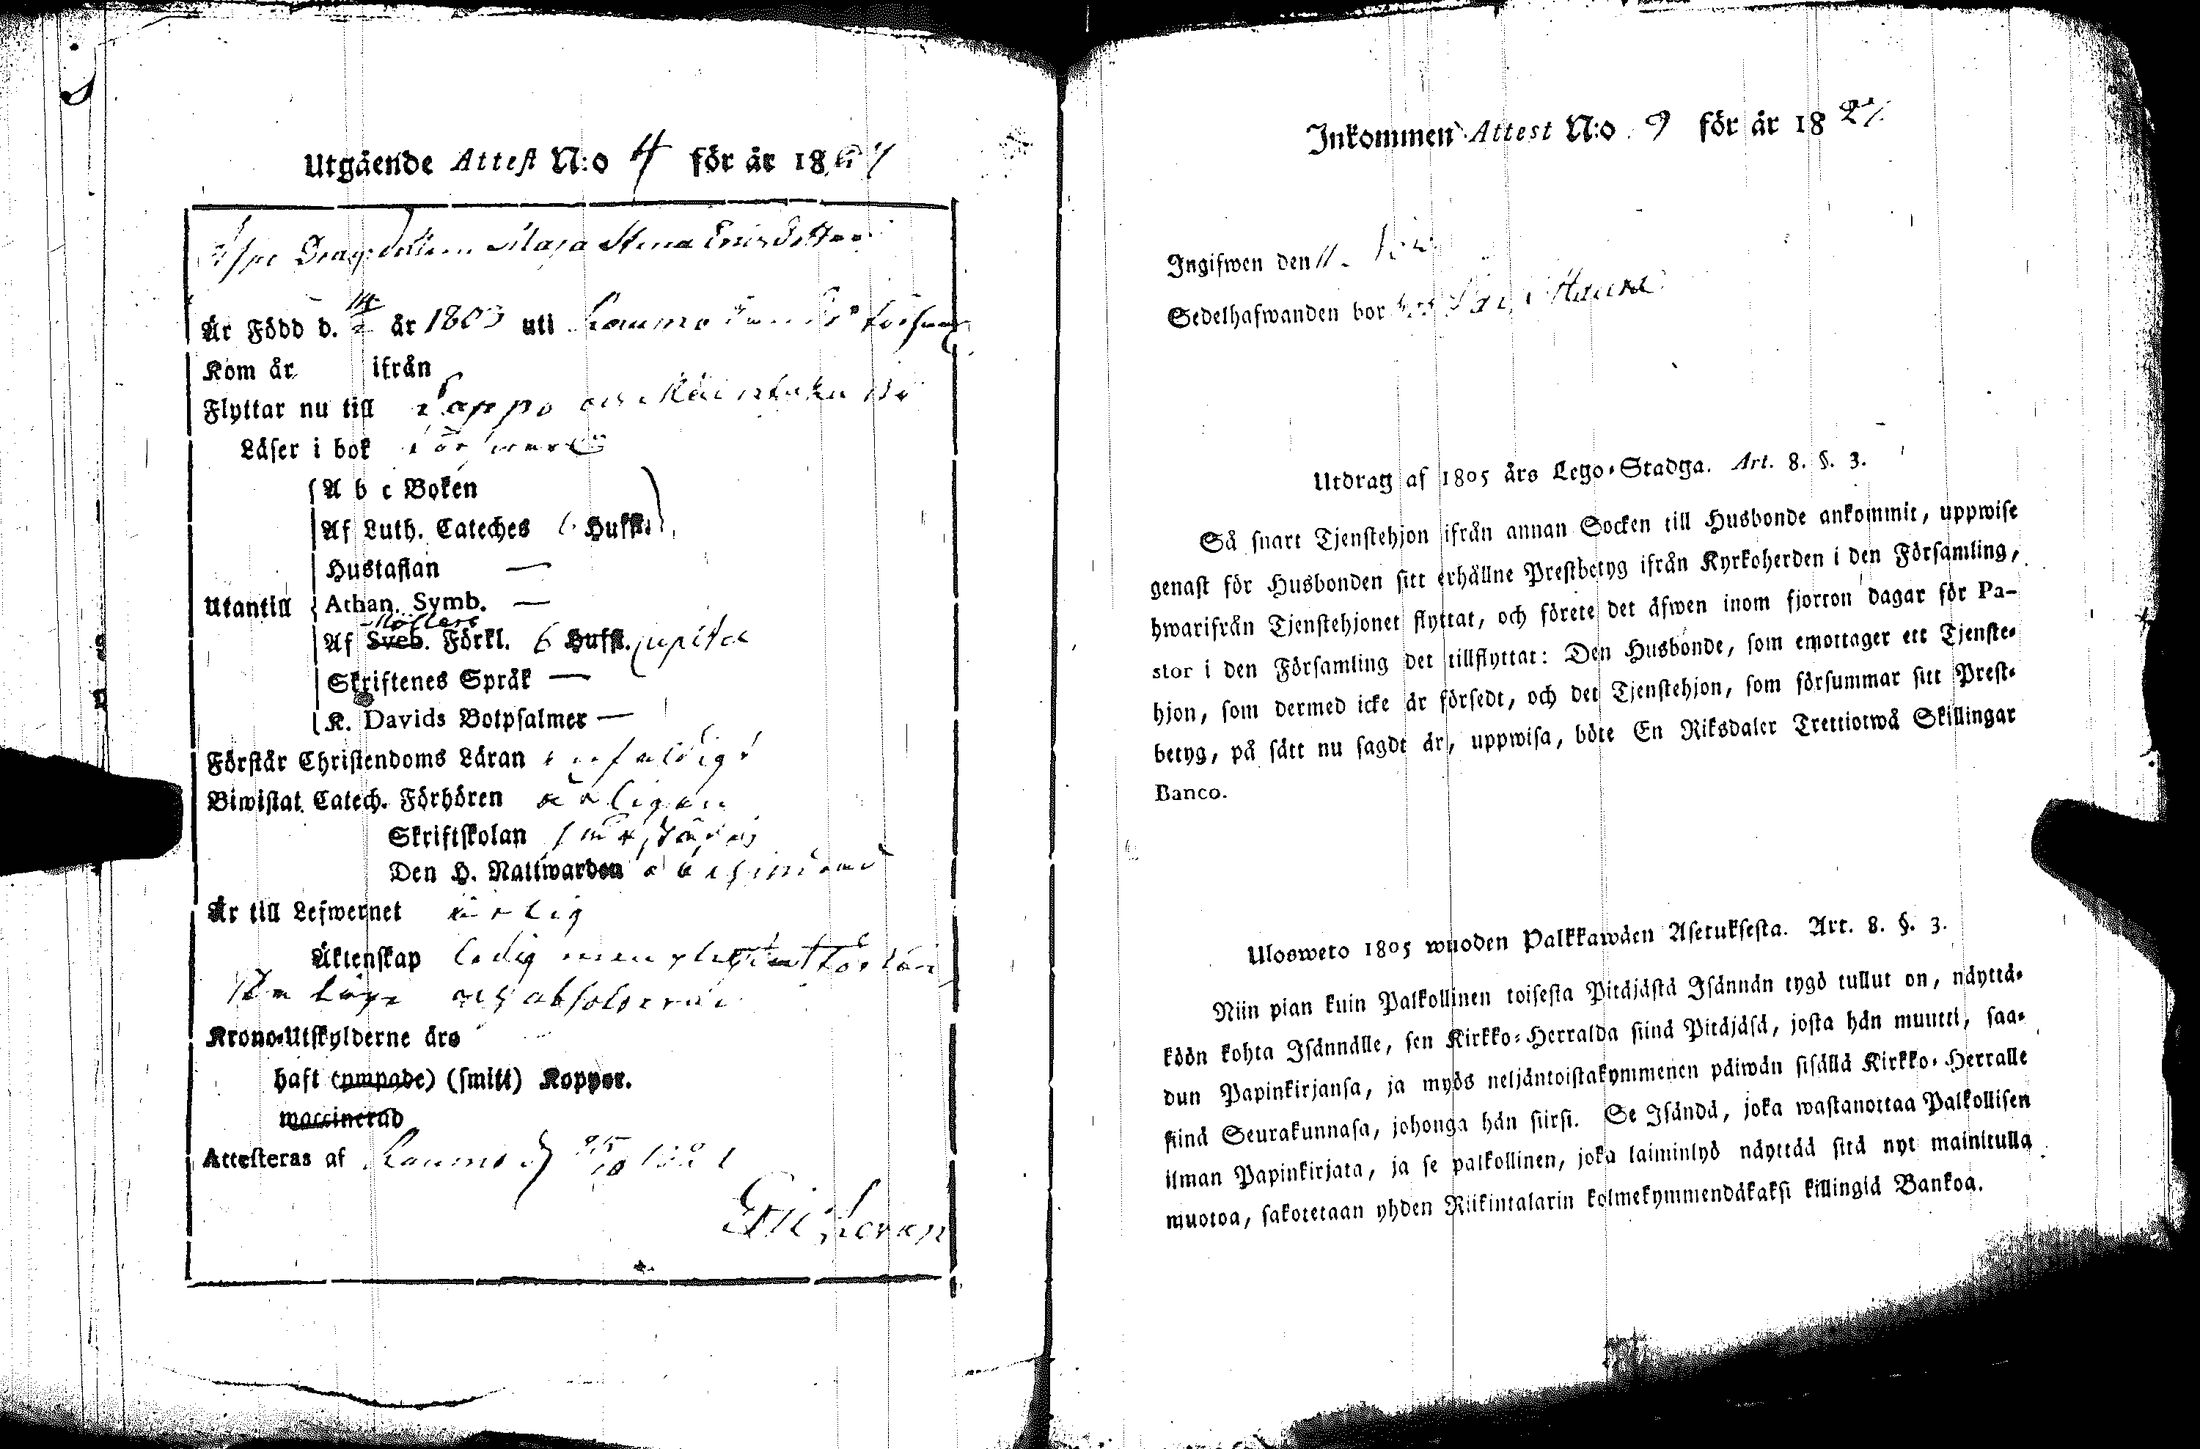 Utgående Attest N:o 4 för år 18
Maja Stina Ericsdotter
Är Född d. år 1803 uti Raumo
Kom år ifrån
Flyttar nu till Lappo
Läser i bok förswarl.
A b c Boken
Af Luth. Cateches 6 Hufst.
Hustaflan —
Utantill Athan. Symb. —
Möllers
Af Sveb. Förkl. 6 Hufst.
Skriftenes Språk —
K. Davids Botpsalmer —
Förstår Christendoms Läran enfaldigt
Biwistat Catech. Förhören årligen
Skriftskolan
Den H. Nattwarden
Är till Lefwernet ärlig
Äktenskap ledig men
och absolverad
Krono-Utskylderne års
haft (ympade) (smitt) Koppor.
waccinerad
Attesteras af Raumo d
Inkommen Attest N:o 9 för år 18
Ingifwen den 11.
Sedelhafwanden bor
Utdrag af 1805 års Lego-Stadga. Art. 8. §. 3.
Så snart Tjenstehjon ifrån annan Socken till Husbonde ankommit, uppwise
genast för Husbonden sitt erhållne Prestbetyg ifrån Kyrkoherden i den Församling,
hwarifrån Tjenstehjonet flyttat, och förete det äfwen inom fjorton dagar för Pa-
stor i den Församling det tillflyttat: Den Husbonde, som emottager ett Tjenste-
hjon, som dermed icke är försedt, och det Tjenstehjon, som försummar sitt Prest-
betyg, på sätt nu sagdt är, uppwisa, böte En Riksdaler Trettiotwå Skillingar
Banco.
Ulosweto 1805 wuoden Palkkawäen Asetuksesta. Art. 8. §. 3.
Niin pian kuin Palkollinen toisesta Pitäjästä Isännän tygö tullut on, näyttä-
köön kohta Isännälle, sen Kirkko-Herralda siinä Pitäjäsä, josta hän muutti, saa-
dun Papinkirjansa, ja myös neljäntoistakymmenen päiwän sisällä Kirkko-Herralle
siinä Seurakunnasa, johonga hän siirsi. Se Isändä, joka wastanottaa Palkollisen
ilman Papinkirjata, ja se palkollinen, joka laiminlyö näyttää sitä nyt mainitulla
muotoa, sakotetaan yhden Riikintalarin kolmekymmendäkaksi killingiä Bankoa.